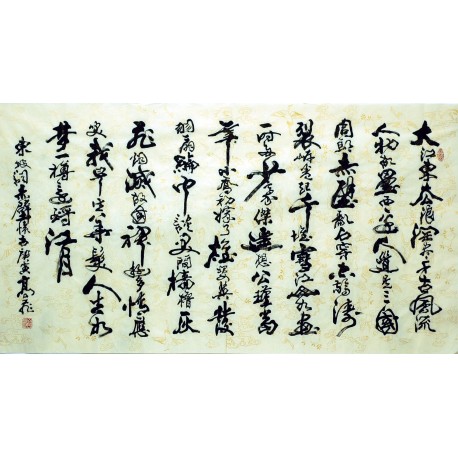 大江東去浪淘盡千古風流
人物故壘西邊人道是三國
周郎赤壁亂石穿空驚濤
裂岸卷起千堆雪江山如畫
一時多少豪傑遙想公瑾當
年小喬初嫁了雄姿英發
羽扇綸巾談笑間檣櫓灰
飛煙滅故國神遊多情應
笑我早生華髮人生如
夢一樽還酹江月
東坡詞赤壁懷古庚寅